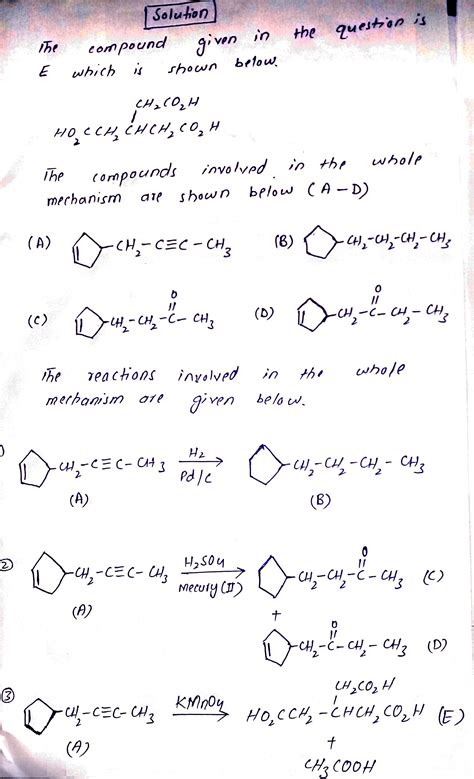 Solution
The compound given in the question is
E which is shown below.
CH₂CO₂H
HO₂CCH₂CHCH₂CO₂H
The compounds involved in the whole
mechanism are shown below (A-D)
(A) -CH₂-C≡C-CH₃ (B) -CH₂-CH₂-CH₂-CH₃
O O
(C) -CH₂-CH₂-C-CH₃ (D) -CH₂-C-CH₂-CH₃
The reactions involved in the whole
mechanism are given below.
H₂
-CH₂-C≡C-CH₃ → -CH₂-CH₂-CH₂-CH₃
Pd/C
(A) (B)
O
② -CH₂-C≡C-CH₃ H₂SO₄ → -CH₂-CH₂-C-CH₃ (C)
mecury(II)
(A) +
O
-CH₂-C-CH₂-CH₃ (D)
CH₂CO₂H
③ -CH₂-C≡C-CH₃ KMnO₄ → HO₂CCH₂-CHCH₂CO₂H (E)
(A) +
CH₃COOH